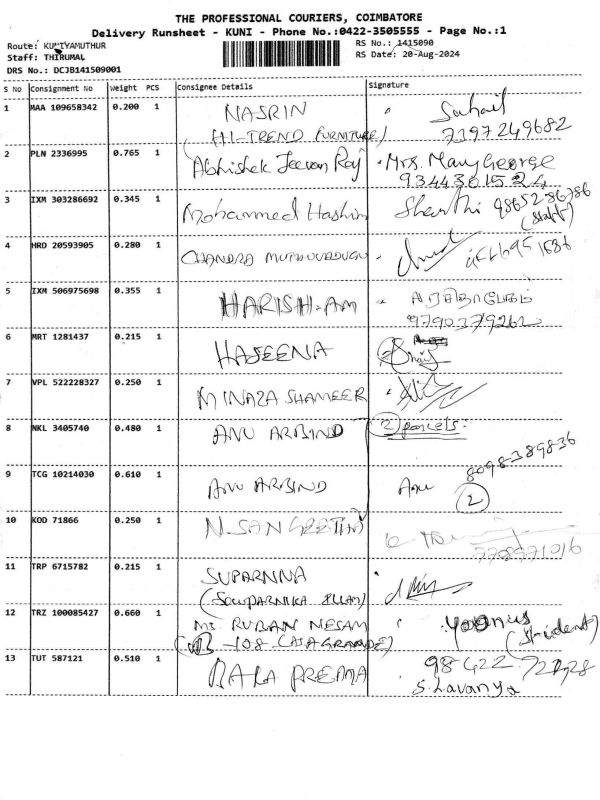 THE PROFESSIONAL COURIERS, COIMBATORE
Delivery Runsheet - KUNI - Phone No.:0422-3505555 - Page No.:1
Route: KUNIYAMUTHUR
RS No.: 1415090
Staff: THIRUMAL
RS Date: 20-Aug-2024
DRS No.: DCJB141509001
S No Consignment No Weight PCS Consignee Details Signature
1 MAA 109658342 0.200 1 NASRIN Suhail
(HI-TREND FURNITURE) 7197249682
2 PLN 2336995 0.765 1 Abhishek Jeevan Raj Mrs. Mary George
9344301524
3 IXM 303286692 0.345 1 Mohammed Hashim Shanthi 9865286786
(staff)
4 HRD 20593905 0.280 1 CHANDRA
5 IXM 506975698 0.355 1 HARISH-AM
9790379262
6 MRT 1281437 0.215 1 HASEENA
7 VPL 522228327 0.250 1 MINAZA SHAMEER
8 NKL 3405740 0.480 1 ANU ARBIND 2 parcels:
8098389836
9 TCG 10214030 0.610 1 ANU ARBIND Anu
2
10 KOD 71866 0.250 1 N. SANGEETHA
7708971016
11 TRP 6715782 0.215 1 SUPARNNA
(SOWPARNIKA ILLAM)
12 TRZ 100085427 0.660 1 Ms RUBAN NESAM Yoonus
-108 CASAGRANDE) (student)
13 TUT 587121 0.510 1 BALA PREMA 98422 72928
S. Lavanya